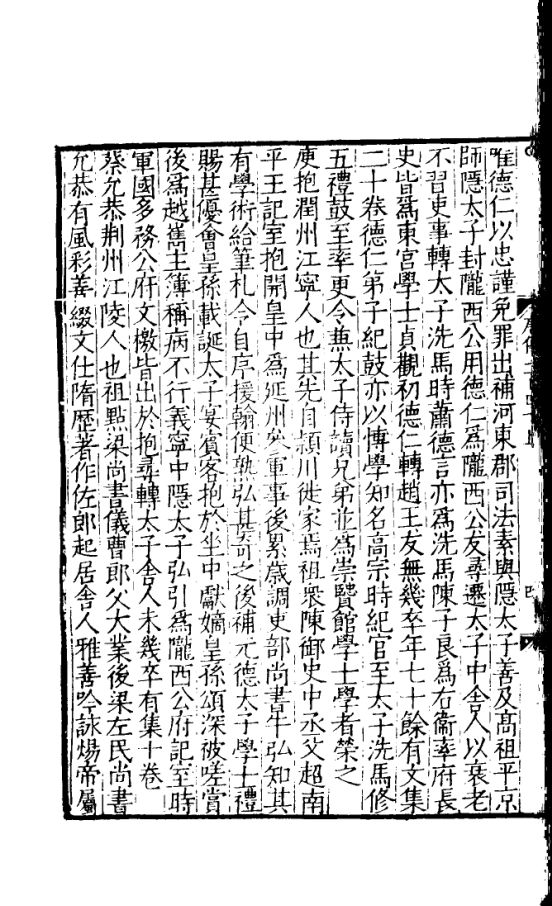 惟德仁以忠謹免罪出補河東郡司法素與隱太子善及髙祖平京
師隱太子封隴西公用德仁爲隴西公友尋遷太子中舍人以衰老
不習吏事轉太子洗馬時蕭德言亦爲洗馬陳子良爲右衞率府長
史皆爲東宮學士貞觀初德仁轉趙王友無幾卒年七十餘有文集
二十卷德仁弟子紀敱亦以博學知名高宗時紀官至太子洗馬修
五禮敱至率更令兼太子侍讀兄弟並爲崇賢館學士學者榮之
庾抱潤州江寧人也其先自潁川徙家焉祖衆陳御史中丞父超南
平王記室抱開皇中爲延州叅軍事後累歳調吏部尚書牛弘知其
有學術給筆札令自序援翰便就弘甚奇之後補元德太子學士禮
賜甚優會皇孫載誕太子宴賓客抱於坐中獻嫡皇孫頌深被嗟賞
後爲越巂主簿稱病不行義寧中隱太子弘引爲隴西公府記室時
軍國多務公府文檄皆出於抱尋轉太子舍人未幾卒有集十卷
蔡允恭荆州江陵人也祖點梁尚書儀曹郎父大業後梁左民尚書
允恭有風彩善綴文仕隋歴著作佐郎起居舍人雅善吟詠煬帝屬